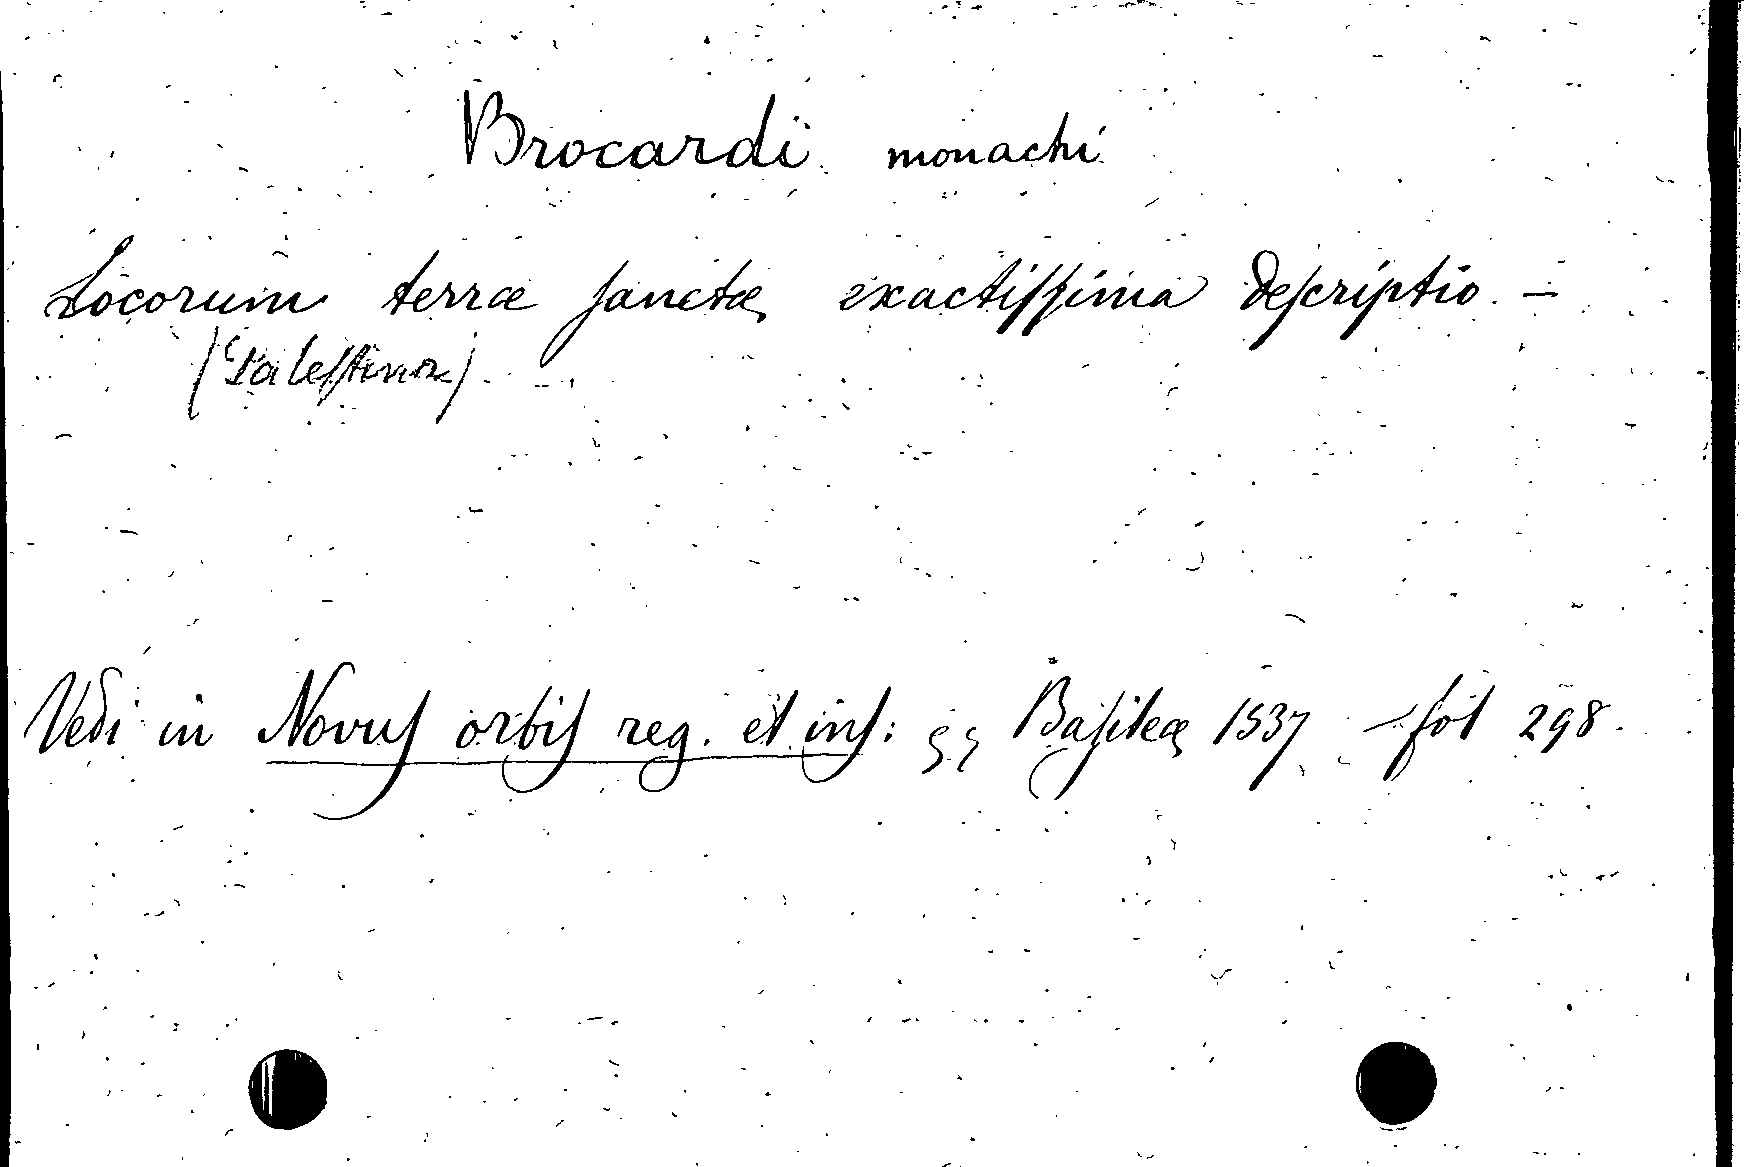 Brocardi monachi
Locorum terræ sanctæ exactissima descriptio. —
(Palestina)
Vedi in Novus orbis reg. et ins: Basileæ 1537 — fol 298.